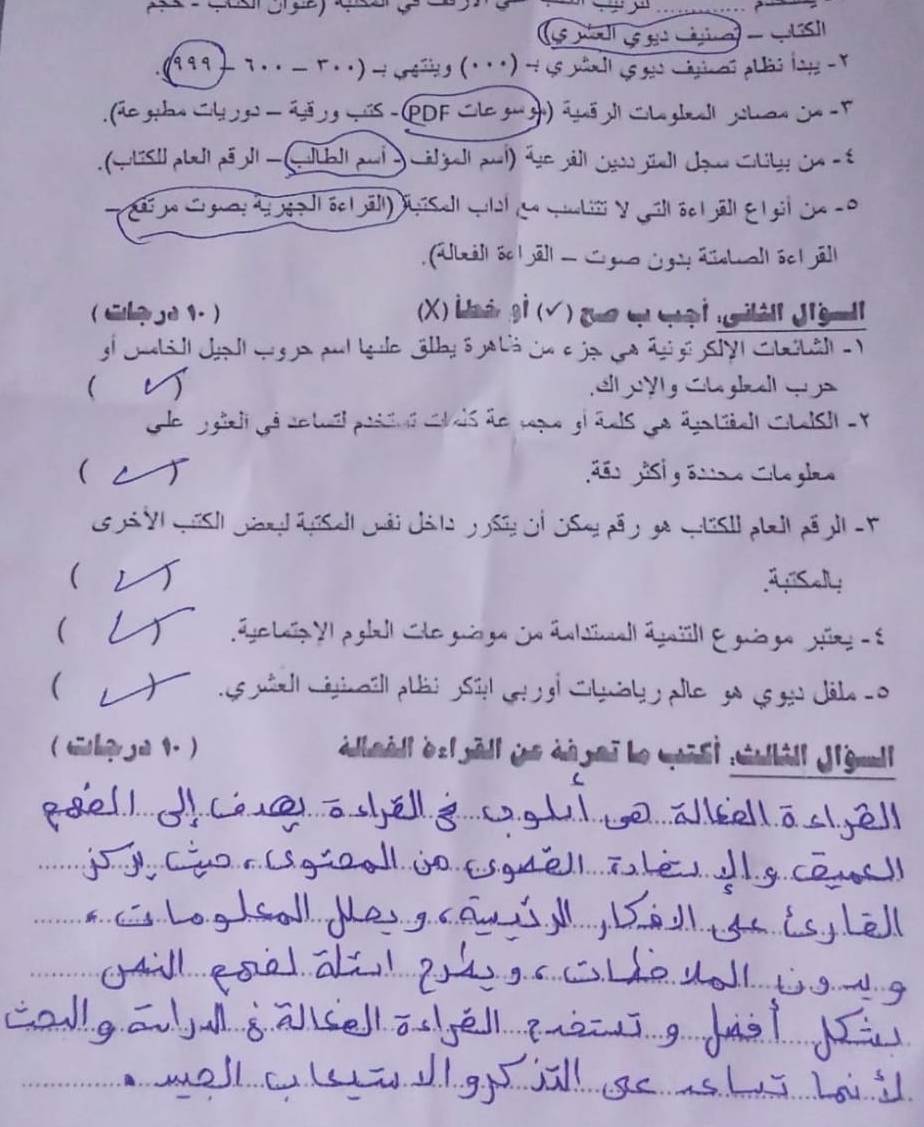 الكتاب – تصنيف ديوي العشري))
٢- يبدأ نظام تصنيف ديوي العشري بـ (٠٠٠) وينتهي بـ (٣٠٠ – ٦٠٠ – ٩٩٩).
٣- من مصادر المعلومات الرقمية (موسوعات PDF - كتب ورقية – دوريات مطبوعة).
٤- من بيانات سجل المترددين الفرعية (اسم المؤلف - اسم الطالب – الرقم العام للكتاب).
٥- من أنواع القراءة التي لا تتناسب مع آداب المكتبة (القراءة الجهرية بصوت مرتفع –
القراءة الصامتة بدون صوت – القراءة الفعالة).
السؤال الثاني: أجب ب صح (✓) أو خطأ (X) (١٠ درجات)
١- الشائعات الإلكترونية هي جزء من ظاهرة يطلق عليها اسم حروب الجيل الخامس أو
حرب المعلومات والإدراك. ( ✓ )
٢- الكلمات المفتاحية هي كلمة أو مجموعة كلمات تستخدم لتساعد في العثور على
معلومات محددة وأكثر دقة. ( ✓ )
٣- الرقم العام للكتاب هو رقم يمكن أن يتكرر داخل نفس المكتبة لبعض الكتب الأخرى
بالمكتبة. ( ✓ )
٤- يعتبر موضوع التنمية المستدامة من موضوعات العلوم الاجتماعية. ( ✓ )
٥- ملفل ديوي هو عالم رياضيات أوربي ابتكر نظام التصنيف العشري. ( ✓ )
السؤال الثالث: أكتب ما تعرفة عن القراءة الفعالة (١٠ درجات)
القراءة الفعالة هي أسلوب في القراءة يهدف إلى الفهم
العميق والإستفادة القصوى من المحتوى، حيث يركز
القارئ على الأفكار الرئيسية، ويحلل المعلومات،
ويدون الملاحظات، ويطرح اسئلة لفهم النص
بشكل أفضل وتستخدم القراءة الفعالة في الدراسة والبحث
لأنها تساعد على التذكر والاستيعاب الجيد.